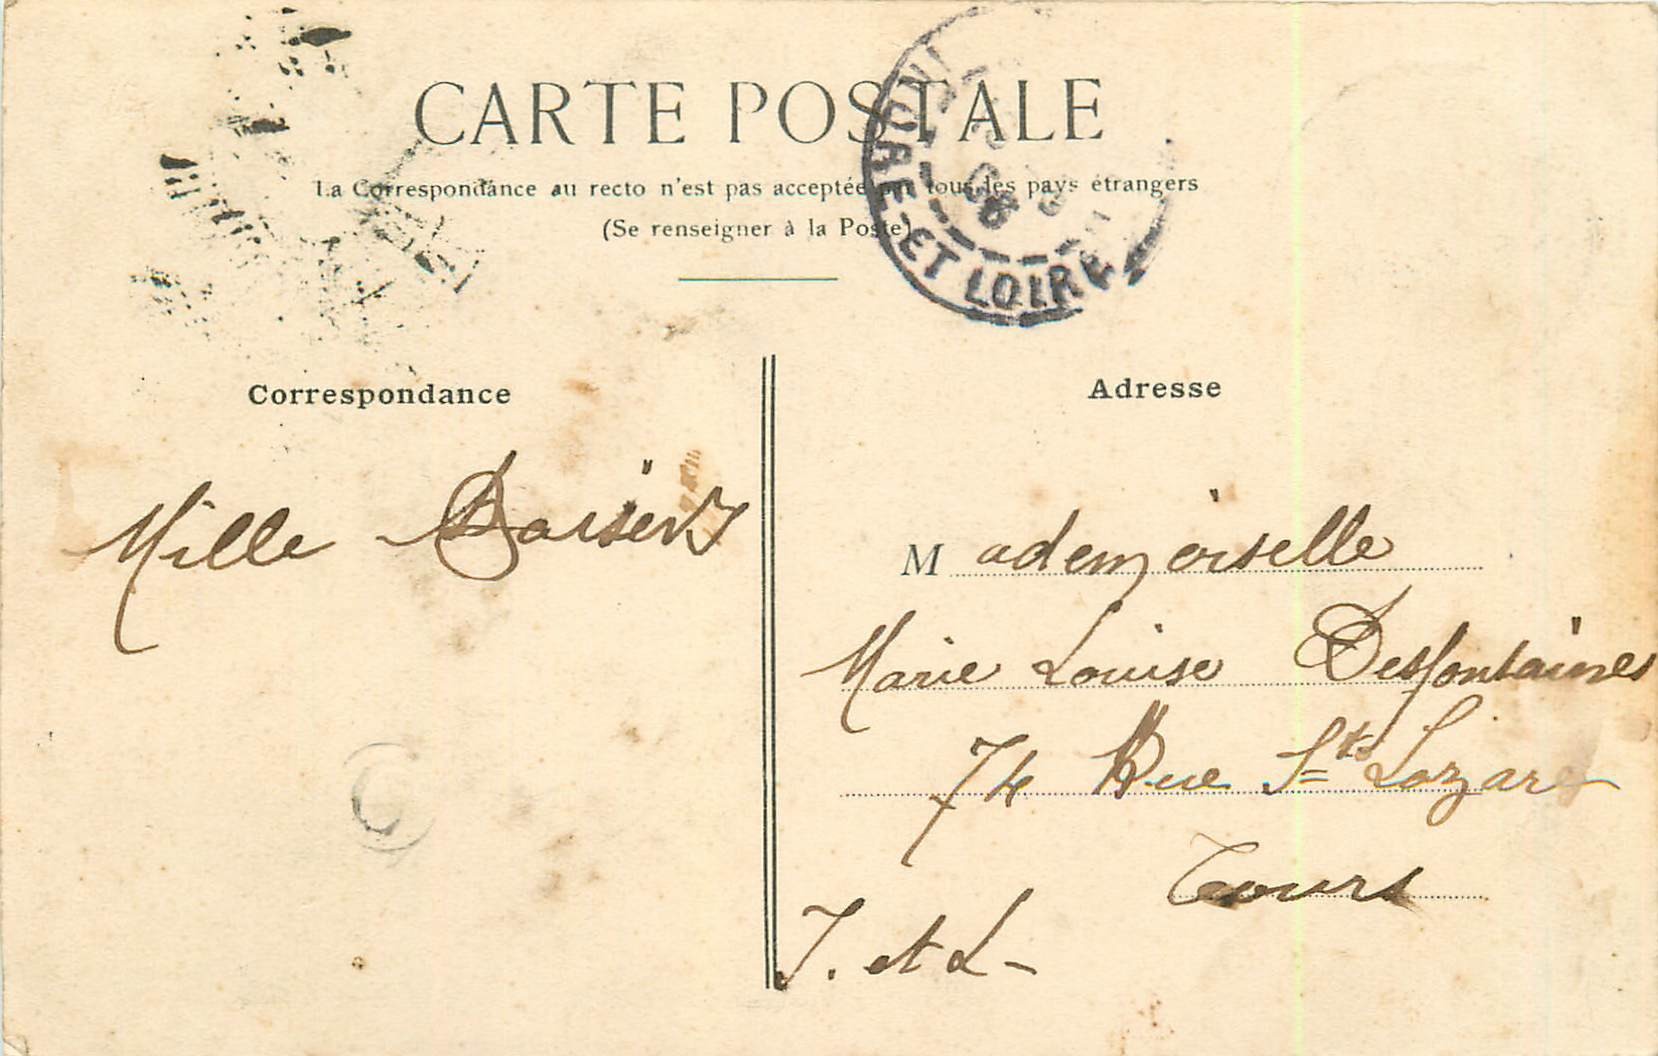 CARTE POSTALE
La Correspondance au recto n'est pas acceptée par tous les pays étrangers
(Se renseigner à la Poste)
INDRE-ET-LOIRE
08
Correspondance
Adresse
Mille Baisers
Mademoiselle
Marie Louise Desfontaines
74 Rue Ste Lazare
Tours
I. et L-